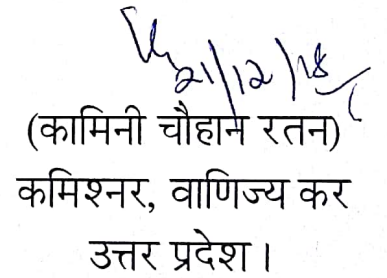 21/12/18
(कामिनी चौहान रतन)
कमिश्नर, वाणिज्य कर
उत्तर प्रदेश।